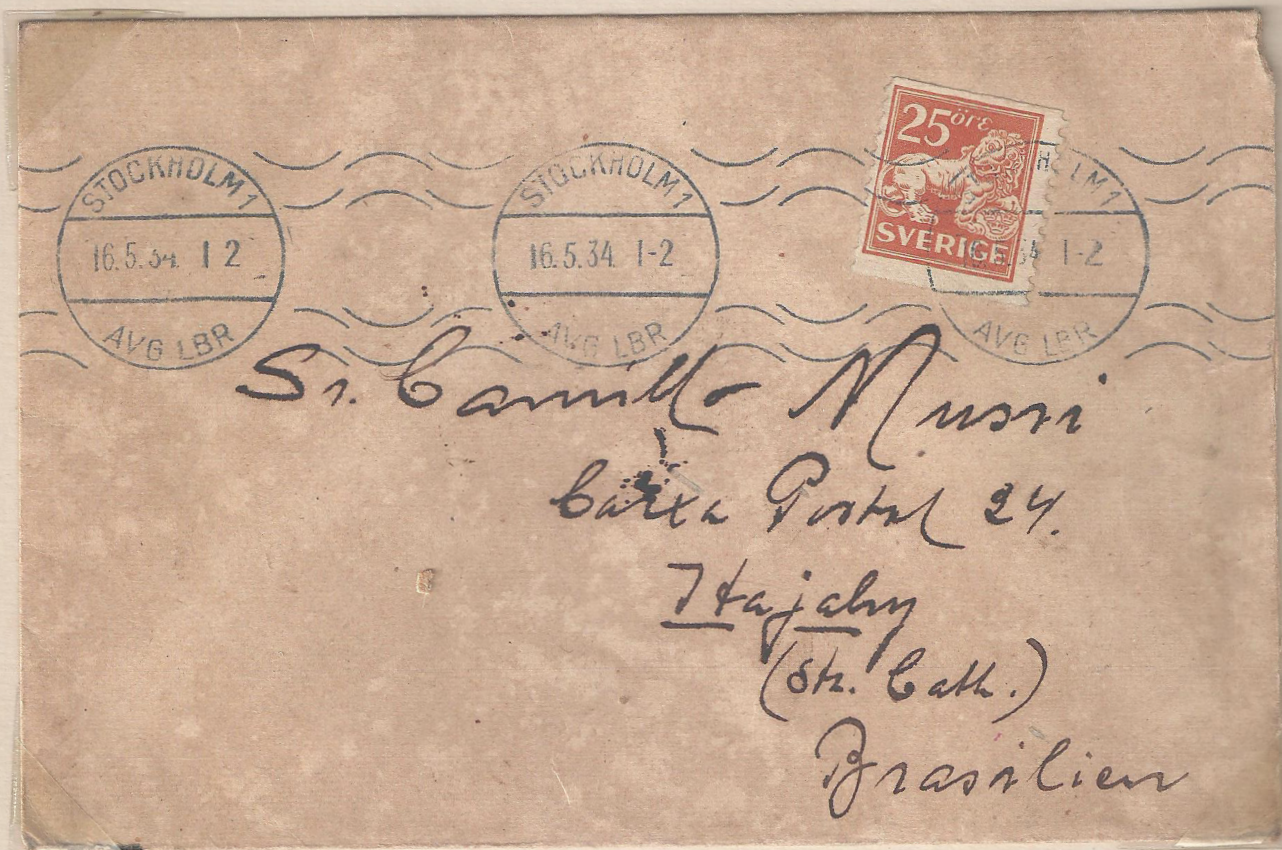 STOCKHOLM 1
16.5.34. 1 2
AVG LBR
STOCKHOLM 1
16.5.34 1-2
AVG LBR
25 öre
SVERIGE
HOLM 1
34 1-2
AVG LBR
Sr. Camillo Mussi
Caixa Postal 24.
Itajahy
(Sta. Cath.)
Brasilien